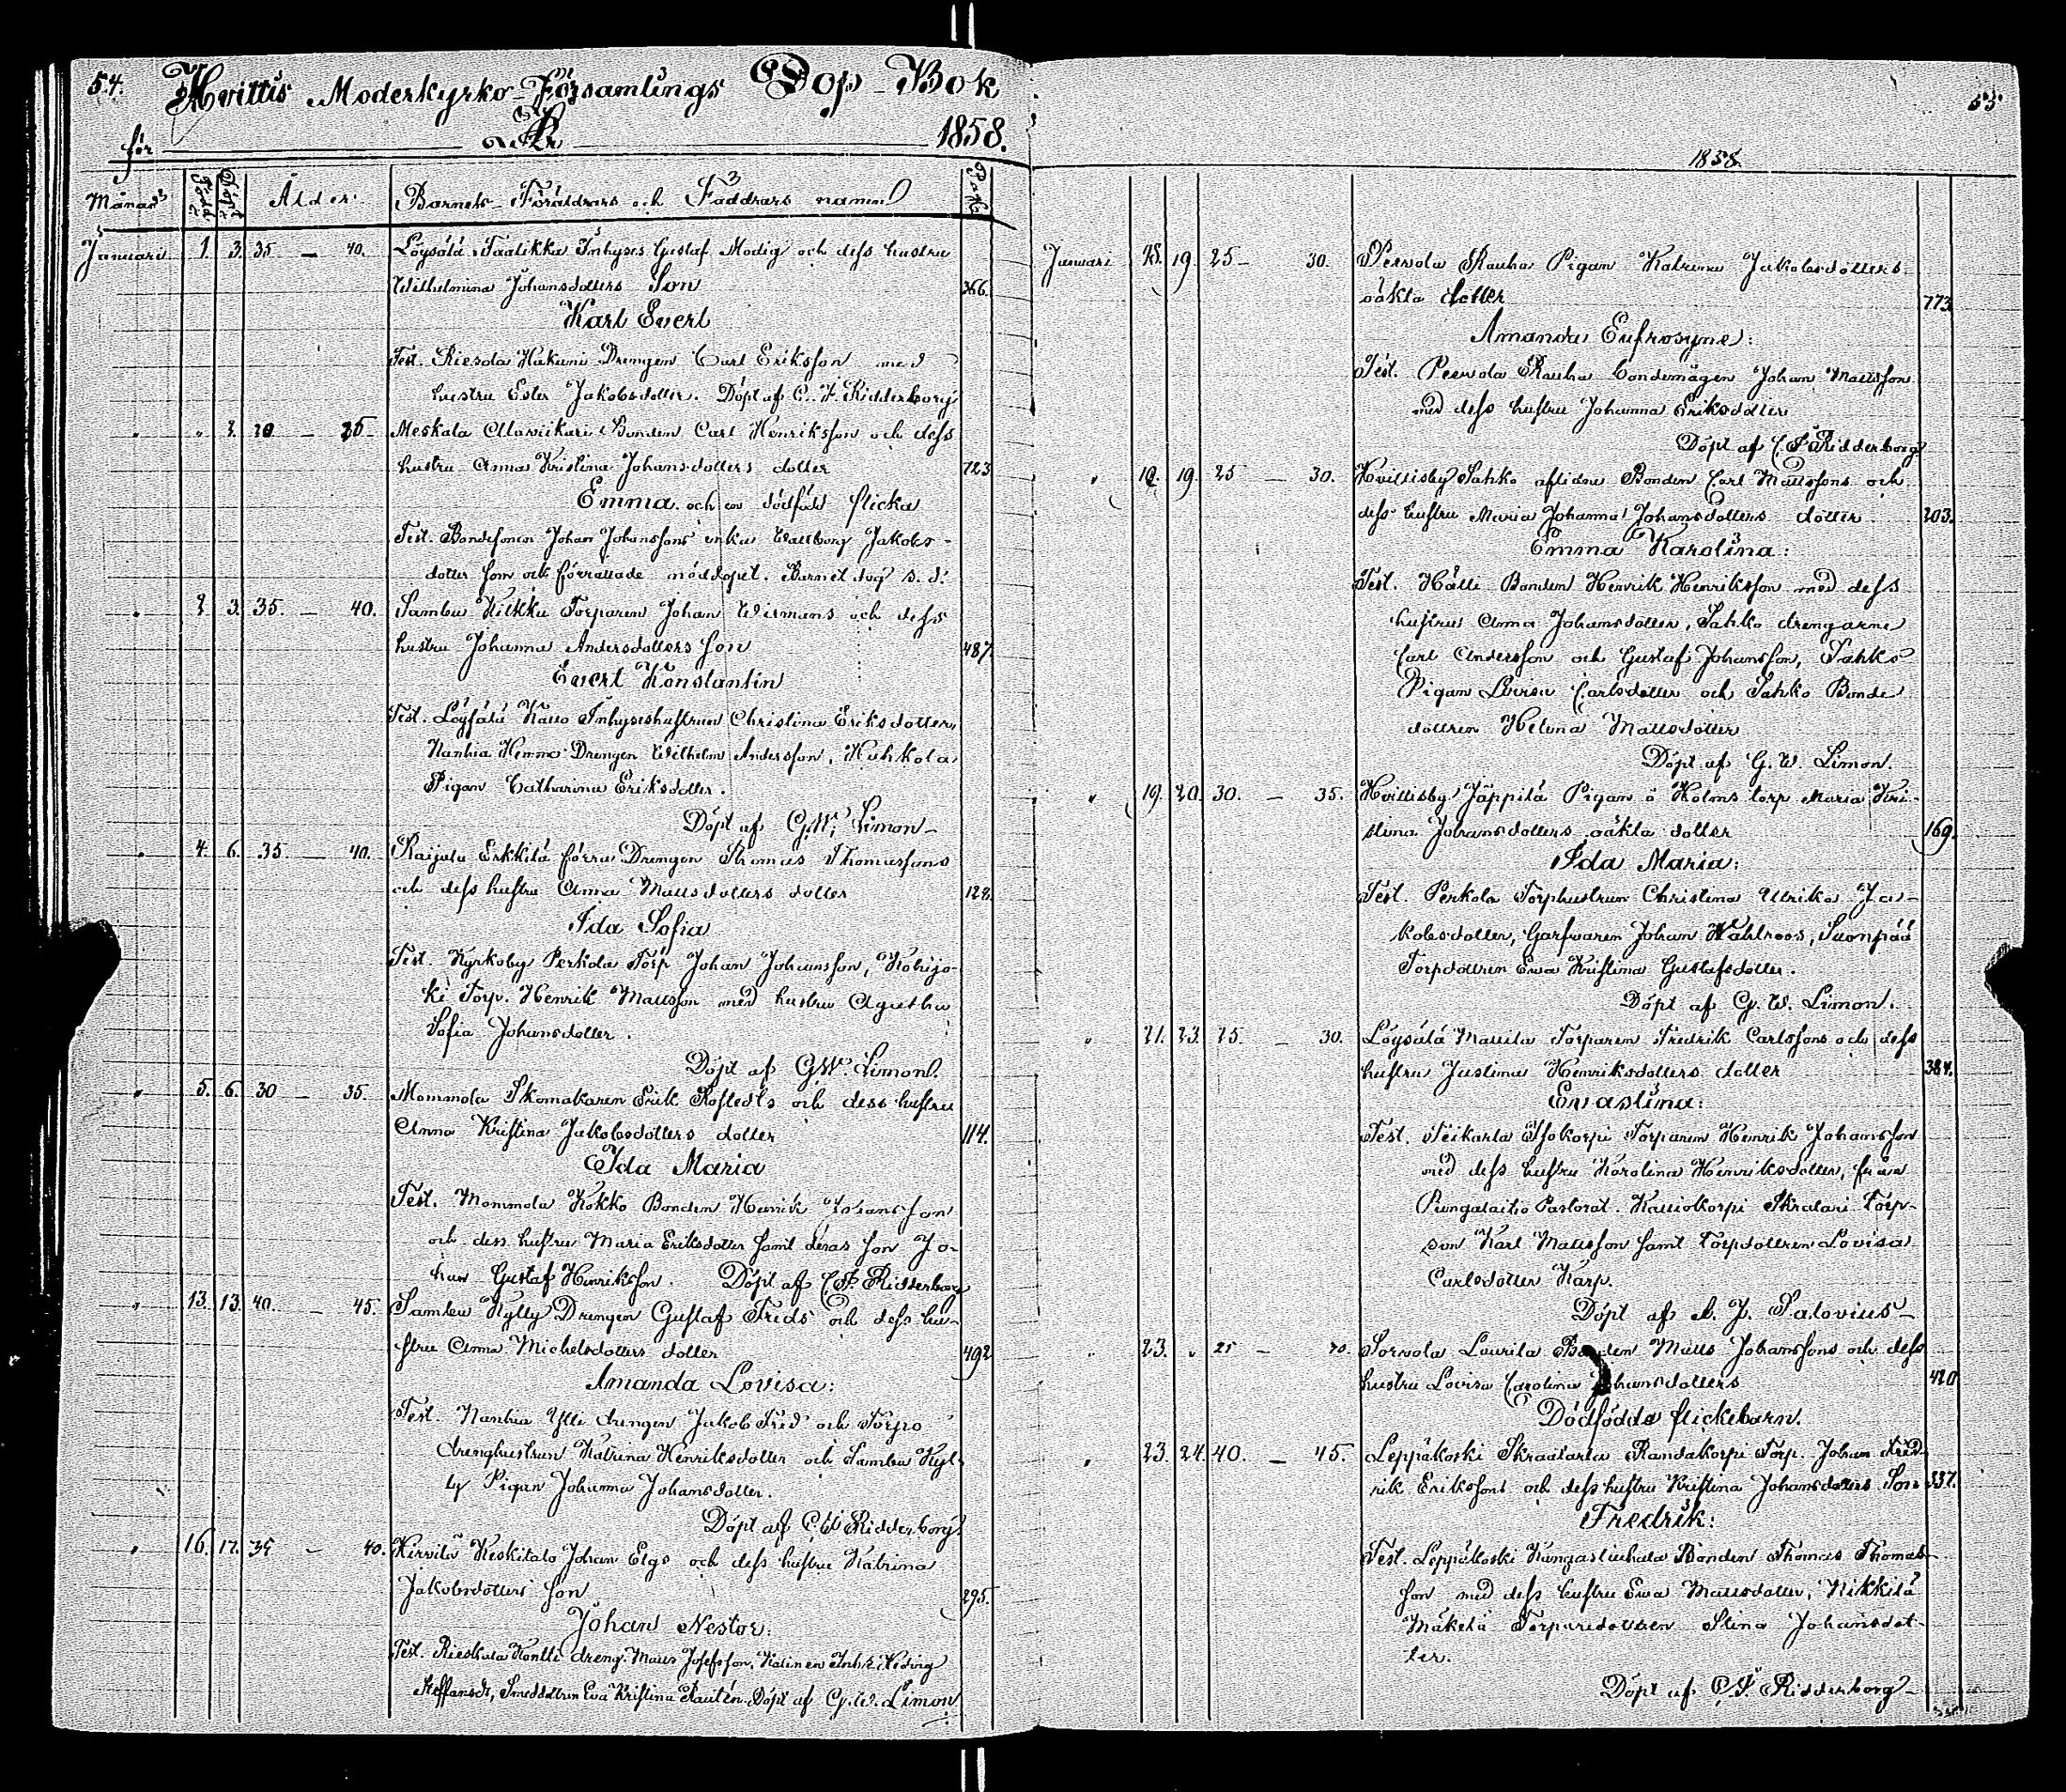 54. Hvittis Moderkyrko-Församlings Dop-Bok
för År 1858.
Månad Född Döpt Ålder Barnets Föräldrars och Faddrars namn Pag.
Januari 1. 3. 35 — 40. Löysälä Taalikka Inhyses Gustaf Modig och dess hustru
Wilhelmina Johansdotters Son 266.
Karl Evert
Test. Riesola Hakuni Drengen Carl Eriksson med
hustru Ester Jakobsdotter. Döpt af C. F. Ridderborg
" " 2. 20 — 25 Meskala Bonden Carl Henriksson och dess
hustru Anna Kristina Johansdotters dotter 723
Emma och en dödfödd flicka
Test. Bondesonen Johan Johanssons enka Wallborg Jakobs-
dotter som ock förrättade nöddopet. Barnet dog s. d.
" 2. 3. 35. — 40. Sambu Kilkku Torparen Johan Widmans och dess
hustru Johanna Andersdotters son 487.
Evert Konstantin
Test. Löysälä Katto Inhyseshustrun Christina Eriksdotter,
Nanhia Hemmo Drengen Wilhelm Andersson, Huhkola
Pigan Catharina Eriksdotter.
Döpt af G. W. Limon
" 4. 6. 35. — 40. Raijala Erkkilä förra Drengen Thomas Thomassons
och dess hustru Anna Mattsdotters dotter 128.
Ida Sofia
Test. Kyrkoby Perkola Torp. Johan Johansson, Kohijo-
ki Torp. Henrik Mattsson med hustru Agatha
Sofia Johansdotter.
Döpt af G. W. Limon.
" 5. 6. 30 — 35. Mommola Skomakaren Erik Rostedts och dess hustru
Anna Kristina Jakobsdotters dotter 114.
Ida Maria
Test. Mommola Kokko Bonden Henrik Johansson
och dess hustru Maria Eriksdotter samt deras son Jo-
han Gustaf Henriksson. Döpt af C. F. Ridderborg
" 13. 13. 40. — 45. Sambu Kylly Drengen Gustaf Freds och dess hu-
stru Anna Michelsdotters dotter 492
Amanda Lovisa:
Test. Nanhia Ylli drengen Jakob Fred och Torpo
drenghustrun Katrina Henriksdotter och Sambu Kyl-
ly Pigan Johanna Johansdotter.
Döpt af C. F. Ridderborg.
" 16. 17. 35 — 40. Kirvilä Keskitalo Johan Elgs och dess hustru Katrina
Jakobsdotters son 295.
Johan Nestor.
Test. Rieskala Kontti dreng. Matts Josefsson, Hedvig
Steffansd., Smeddottren Eva Kristina Rautén. Döpt af G. W. Limon
55.
1858.
Januari 18. 19. 25 — 30. Peevola Rauha Pigan Katrina Jakobsdotters
oäkta dotter 773
Amanda Eufrosyne:
Test. Peevola Rauha bondemågen Johan Mattsson
med dess hustru Johanna Eriksdotter
Döpt af C. F. Ridderborg
" 19. 25 — 30. Hvittisby Sahko aflidne Bonden Carl Mattssons och
dess hustru Maria Johanna Johansdotters dotter 203.
Emma Karolina:
Test. Hälli Bonden Henrik Henriksson med dess
hustru Anna Johansdotter, Sahko drengarne
Carl Andersson och Gustaf Johansson, Sahko
Pigan Lovisa Carlsdotter och Sahko Bonde
dottren Helena Mattsdotter
Döpt af G. W. Limon.
" 19. 20. 30. — 35. Hvittisby Jäppilä Pigan å Holms torp Maria Kri-
stina Johansdotters oäkta dotter 169.
Ida Maria:
Test. Perkola Torphustrun Christina Ulrika Ja-
kobsdotter, Garfvaren Johan Wahlroos, Suonpää
Torpdottren Eva Kristina Gustafsdotter.
Döpt af G. W. Limon.
" 21. 23. 25. — 30. Löysälä Mattila Torparen Fredrik Carlssons och dess
hustru Justina Henriksdotters dotter 384.
Evastina:
Test. Teikarla Isokorpi Torparen Henrik Johansson
med dess hustru Karolina Henriksdotter, från
Pungalaitio Pastorat. Kalliokorpi Skralari Torp-
son Karl Mattsson samt torpdottren Lovisa
Carlsdotter Karp.
Döpt af A. J. Salovius
" 23. " 25 — 30. Sorvola Laurila Bonden Matts Johanssons och dess
hustru Lovisa Carolina Johansdotters 420
Dödfödda flickebarn.
" 23. 24. 40. — 45. Leppäkoski Skraatarla Randakorpi Torp. Johan Fred-
rik Erikssons och dess hustru Kristina Johansdotters Son 337.
Fredrik:
Test. Leppäkoski Kangasliuhala Bonden Thomas Thomas-
son med dess hustru Eva Mattsdotter, Nikkilä
Mäkelä Torparedottren Stina Johansdot-
ter.
Döpt af C. F. Ridderborg